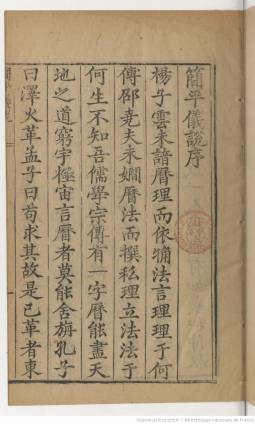 簡平儀說序
楊子雲未諳曆理而依牅法言理理于何
傳邵堯夫未嫺曆法而撰私理立法法于
何生不知吾儒學宗傳有一字曆能盡天
地之道窮宇極宙言曆者莫能舍旃孔子
曰澤火革孟子曰苟求其故是已革者東
Source gallica.bnf.fr / Bibliothèque nationale de France